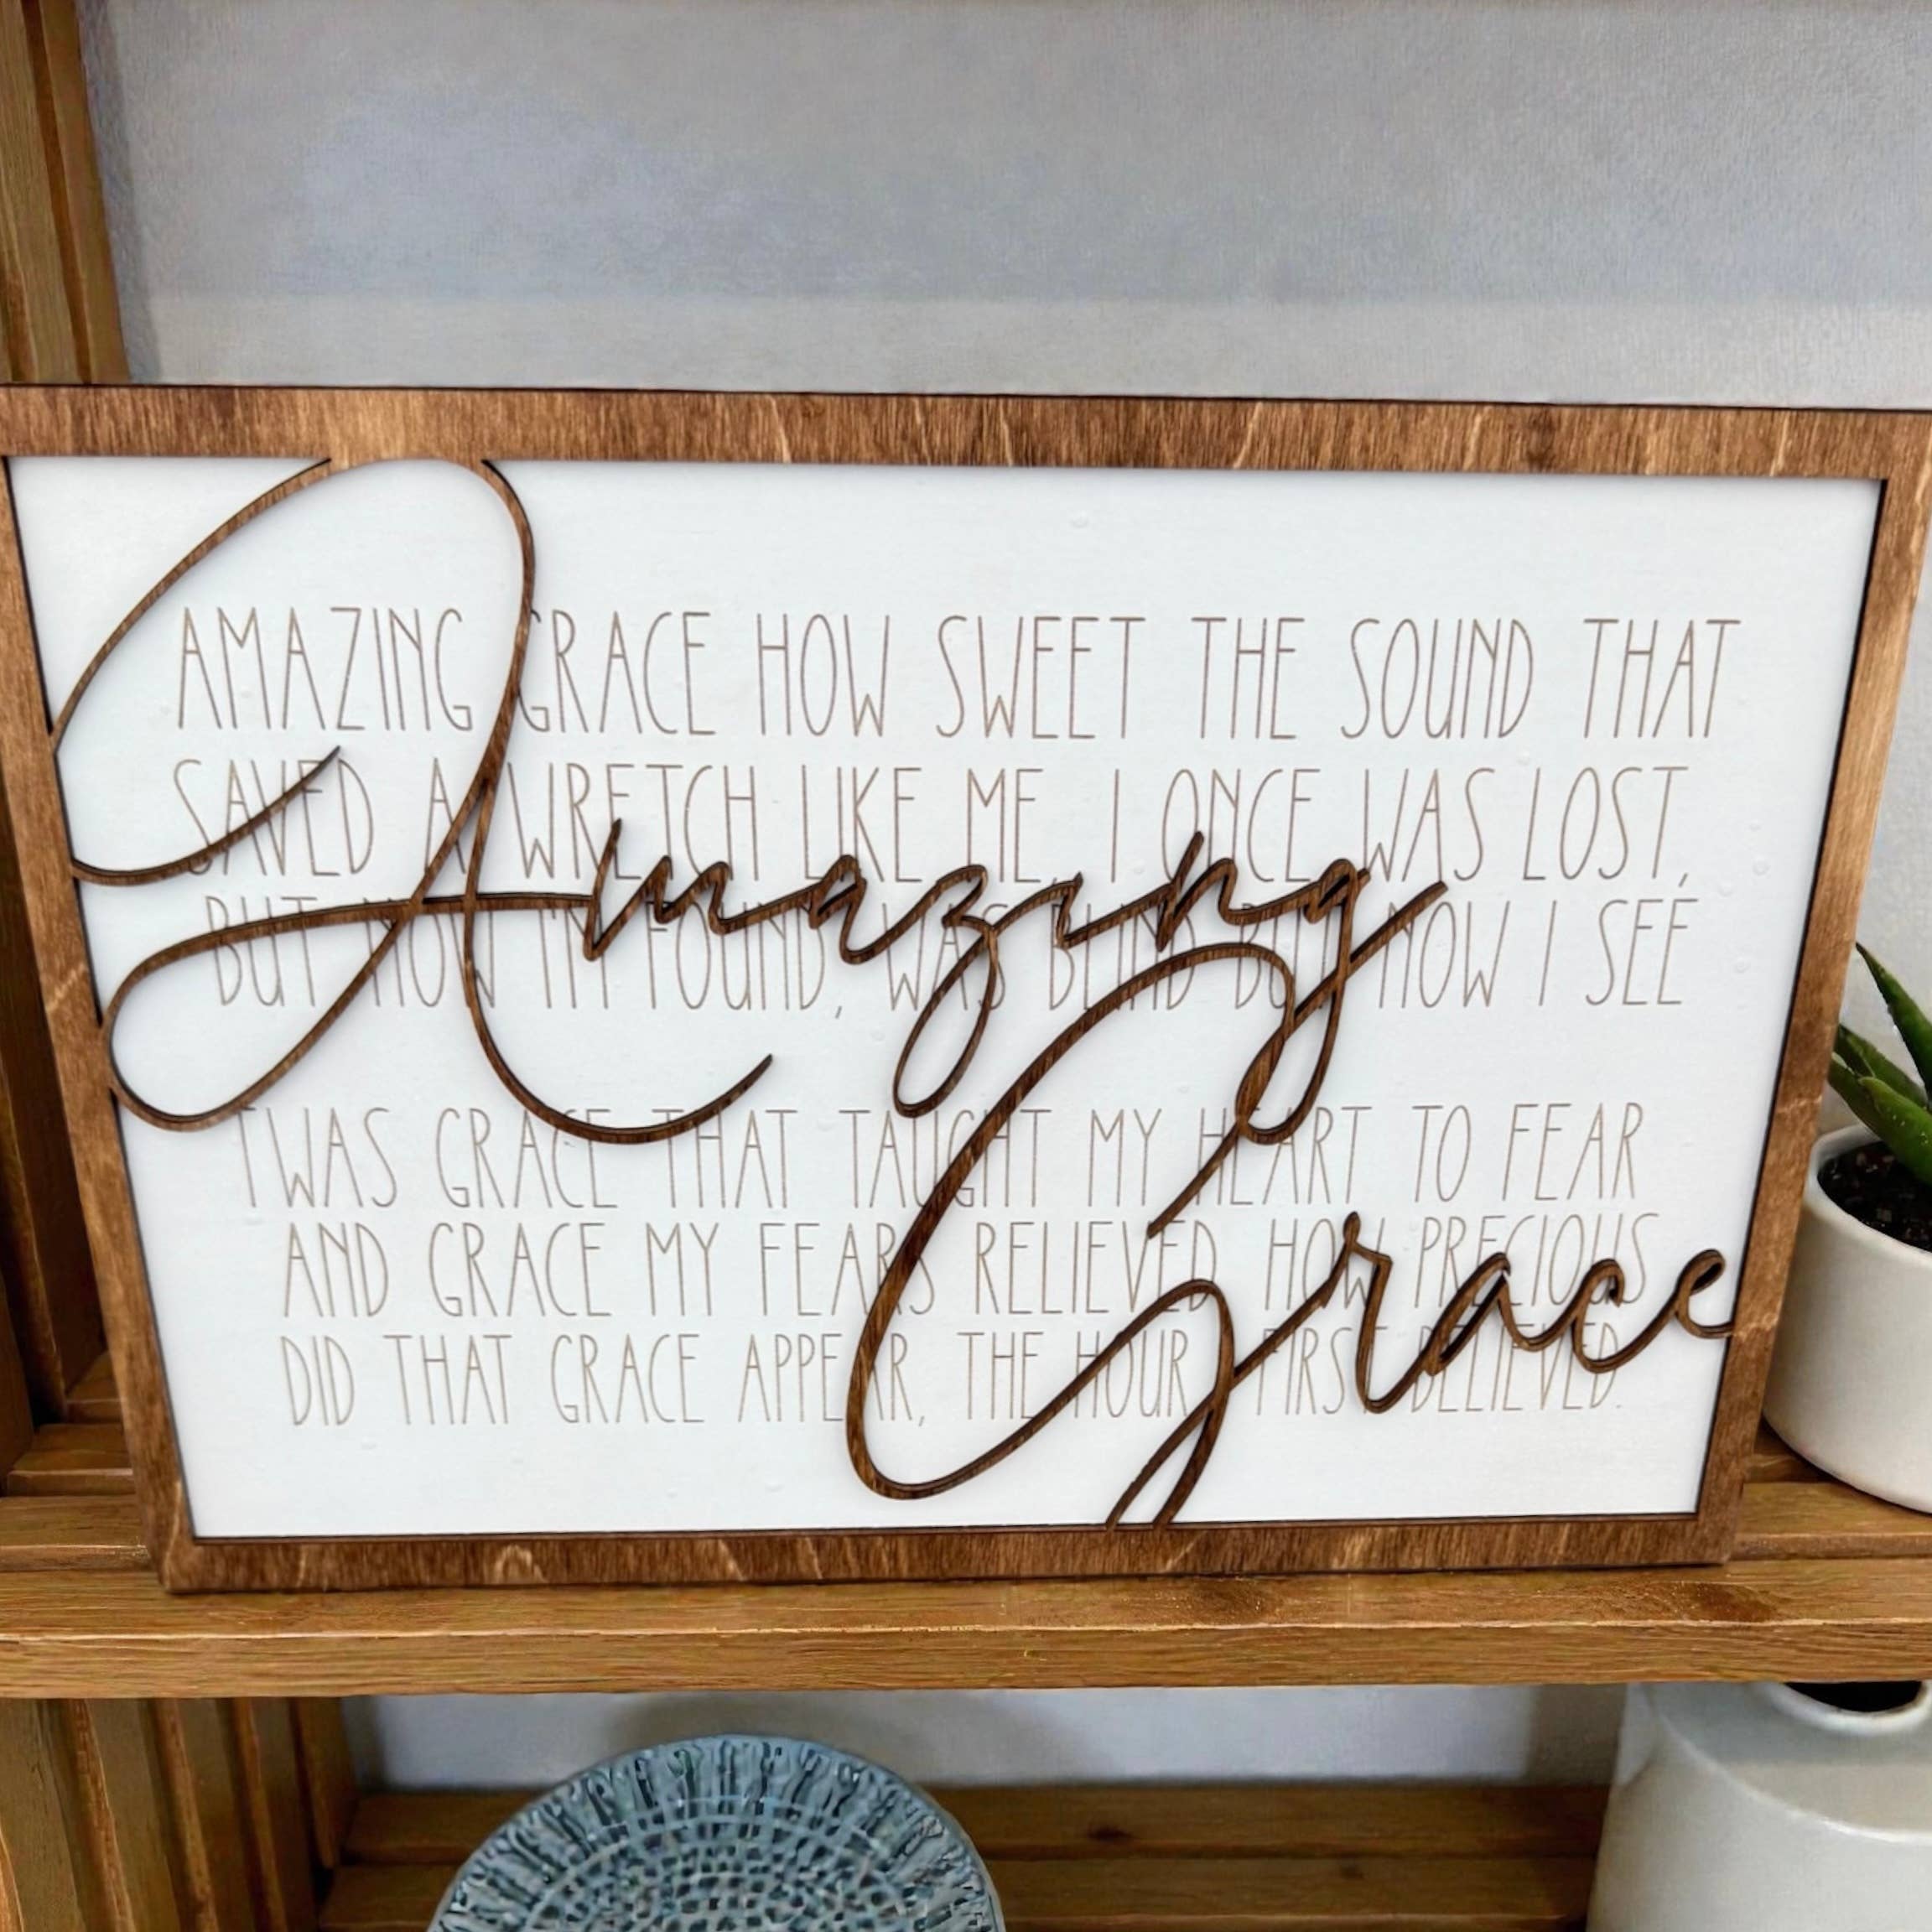 AMAZING GRACE HOW SWEET THE SOUND THAT
SAVED A WRETCH LIKE ME, I ONCE WAS LOST,
BUT NOW I'M FOUND, WAS BLIND BUT NOW I SEE
Amazing
TWAS GRACE THAT TAUGHT MY HEART TO FEAR
AND GRACE MY FEARS RELIEVED HOW PRECIOUS
DID THAT GRACE APPEAR, THE HOUR I FIRST BELIEVED.
Grace